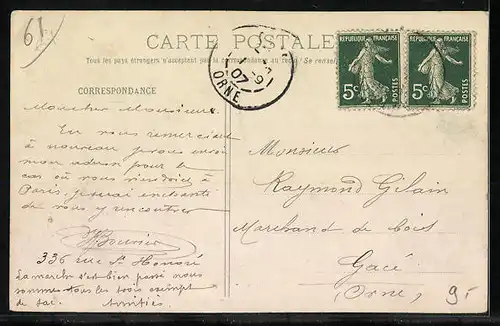 61
CARTE POSTALE
Tous les pays étrangers n'acceptent pas la correspondance au recto (Se renseigner
REPUBLIQUE FRANÇAISE
5c
POSTES
REPUBLIQUE FRANÇAISE
5c
POSTES
07
ORNE
CORRESPONDANCE
Mon cher Monsieur
En vous remerciant
à nouveau je vous envoie
mon adresse pour le
cas où vous viendriez à
Paris, je serai enchanté
de vous y rencontrer
336 rue St Honoré
La marche s'est bien passé nous
sommes tous les trois exempt
de Amitiés
Monsieur
Raymond Gilain
Marchand de bois
Gacé
(Orne)
9.-